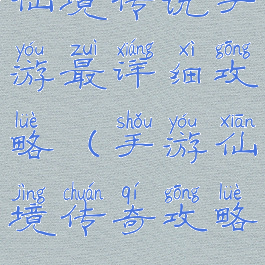 仙境传说手
yóu zuì xiáng xì gōng
游最详细攻
lüè shǒu yóu xiān
略（手游仙
jìng chuán qí gōng lüè
境传奇攻略